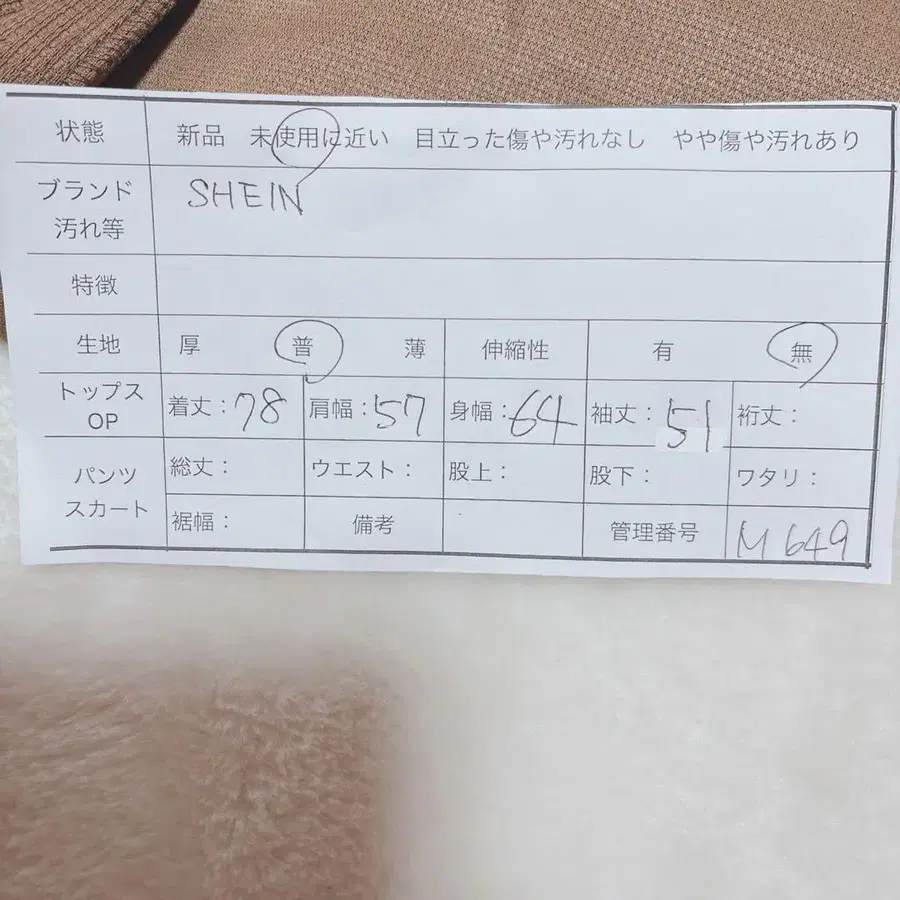 状態 新品 未使用に近い 目立った傷や汚れなし やや傷や汚れあり
ブランド SHEIN
汚れ等
特徴
生地 厚 普 薄 伸縮性 有 無
トップス OP 着丈:78 肩幅:57 身幅:64 袖丈:51 裄丈:
パンツ スカート 総丈: ウエスト: 股上: 股下: ワタリ:
裾幅: 備考 管理番号 M649